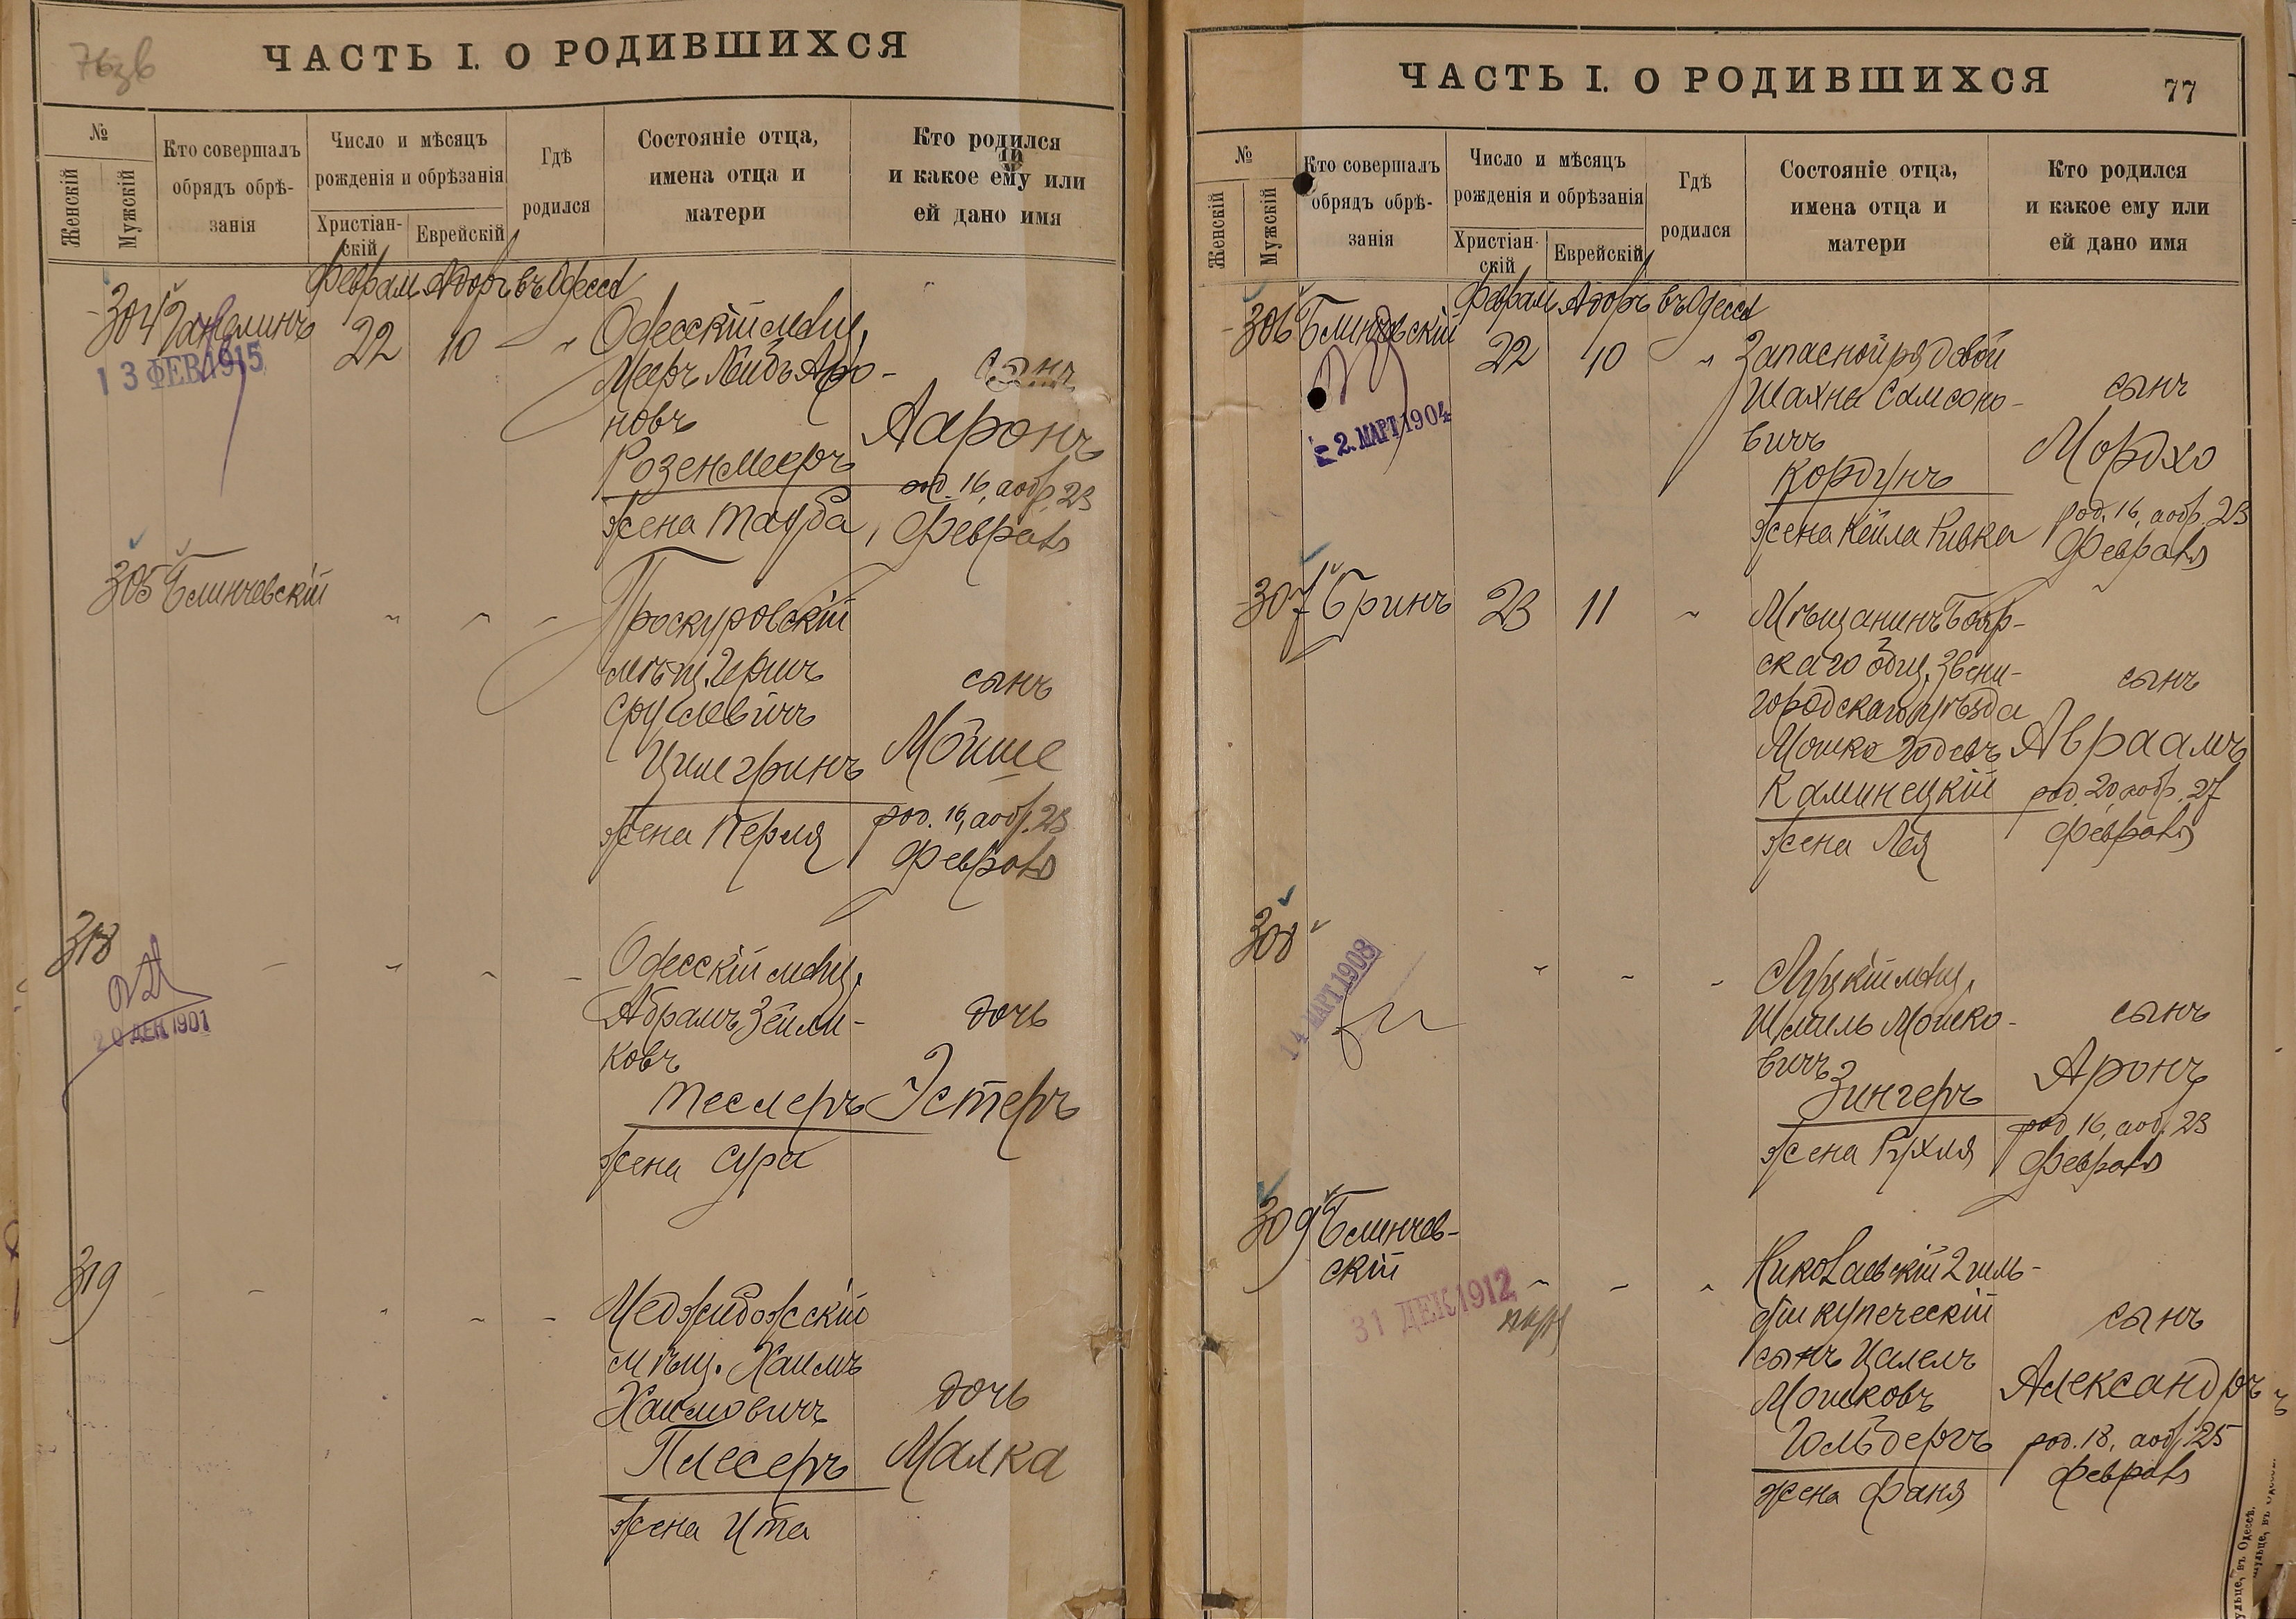 76 зв
ЧАСТЬ I. О РОДИВШИХСЯ
№
Женскій
Мужскій
Кто совершалъ
обрядъ обрѣ-
занія
Число и мѣсяцъ
рожденія и обрѣзанія
Христіан-
скій
Еврейскій
Гдѣ
родился
Состояніе отца,
имена отца и
матери
Кто родился
и какое ему или
ей дано имя
Февраль Адаръ въ Одессѣ
304
13 ФЕВ 1915
22 10 "
Одесскій мѣщ.
Мееръ Лейбъ Аро-
новъ
Розенмееръ
жена Тауба
сынъ
Ааронъ
род. 16, а обр. 23
Февраля
305 Блинчевскій
Проскуровскій
мѣщ. Гершъ
Сруслевичъ
Цимгринъ
жена Перля
сынъ
Мойше
род. 16, а обр. 23
Февраля
318
20 ДЕК 1901
Одесскій мѣщ.
Абрамъ Зейли-
ковъ
Теслеръ
жена Сура
дочь
Эстеръ
319
Меджибожскій
мѣщ. Хаимъ
Хаимовичъ
Плесеръ
жена Ита
дочь
Малка
ЧАСТЬ I. О РОДИВШИХСЯ
77
№
Женскій
Мужскій
Кто совершалъ
обрядъ обрѣ-
занія
Число и мѣсяцъ
рожденія и обрѣзанія
Христіан-
скій
Еврейскій
Гдѣ
родился
Состояніе отца,
имена отца и
матери
Кто родился
и какое ему или
ей дано имя
Февраль Адаръ въ Одессѣ
306 Блинчевскій
2. МАРТ 1904
22 10 "
Запасной рядовой
Шахна Самсоно-
вичъ
Кордунъ
жена Кейла Ривка
сынъ
Мордхо
род. 16, а обр. 23
Февраля
307 Бринъ
23 11 "
Мѣщанинъ Бояр-
скаго общ. Звени-
городскаго уѣзда
Мошко Годевъ
Каминецкій
жена Лея
сынъ
Авраамъ
род. 20, а обр. 27
Февраля
308
14 МАРТ 1908
Луцкій мѣщ.
Шмиль Мошко-
вичъ
Зингеръ
жена Рухля
сынъ
Аронъ
род. 16, а обр. 23
Февраля
309 Блинчев-
скій
31 ДЕК 1912
Николаевскій 2 гиль-
діи купеческій
сынъ Цалелъ
Мошковъ
Гольдергъ
жена Фаня
сынъ
Александръ
род. 18, а обр. 25
Февраля
въ Одессѣ.